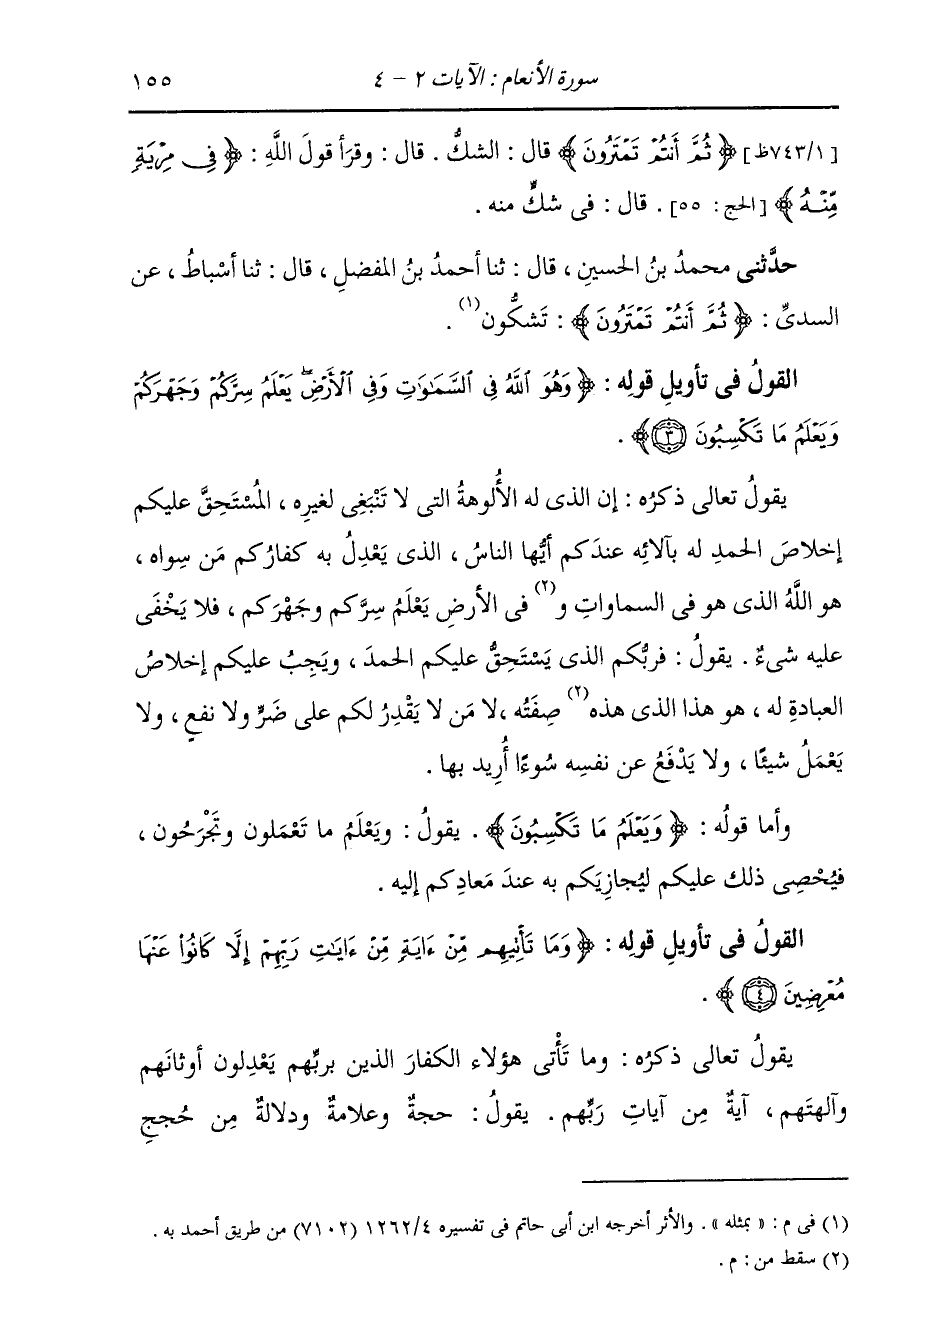 سورة الأنعام : الآيات ٢ - ٤ ١٥٥
[٧٤٣/١ظ] ﴿ ثُمَّ أَنتُمْ تَمْتَرُونَ ﴾ قال : الشكُّ . قال : وقرَأ قولَ اللَّهِ : ﴿ فِي مِرْيَةٍ
مِّنْهُ ﴾ [الحج : ٥٥] . قال : فى شكٍّ منه .
حدَّثنى محمدُ بنُ الحسينِ ، قال : ثنا أحمدُ بنُ المفضلِ ، قال : ثنا أسْباطُ ، عن
السدىِّ : ﴿ ثُمَّ أَنتُمْ تَمْتَرُونَ ﴾ : تَشكُّون(١) .
القولُ فى تأويلِ قولِه : ﴿ وَهُوَ ٱللَّهُ فِي ٱلسَّمَٰوَٰتِ وَفِي ٱلْأَرْضِۖ يَعْلَمُ سِرَّكُمْ وَجَهْرَكُمْ
وَيَعْلَمُ مَا تَكْسِبُونَ ٣ ﴾ .
يقولُ تعالى ذكرُه : إن الذى له الأُلوهةُ التى لا تَنْبَغِى لغيرِه ، المُسْتَحِقَّ عليكم
إخلاصَ الحمدِ له بآلائِه عندَكم أيُّها الناسُ ، الذى يَعْدِلُ به كفارُكم مَن سِواه ،
هو اللَّهُ الذى هو فى السماواتِ و(٢) فى الأرضِ يَعْلَمُ سِرَّكم وجَهْرَكم ، فلا يَخْفَى
عليه شىءٌ . يقولُ : فربُّكم الذى يَسْتَحِقُّ عليكم الحمدَ ، ويَجِبُ عليكم إخلاصُ
العبادةِ له ، هو هذا الذى هذه(٢) صِفَتُه ،لا مَن لا يَقْدِرُ لكم على ضَرٍّ ولا نفعٍ ، ولا
يَعْمَلُ شيئًا ، ولا يَدْفَعُ عن نفسِه سُوءًا أُرِيد بها .
وأما قولُه : ﴿ وَيَعْلَمُ مَا تَكْسِبُونَ ﴾ . يقولُ : ويَعْلَمُ ما تَعْمَلون وتَجْرَحُون ،
فيُحْصِى ذلك عليكم ليُجازِيَكم به عندَ مَعادِكم إليه .
القولُ فى تأويلِ قولِه : ﴿ وَمَا تَأْتِيهِم مِّنْ ءَايَةٍ مِّنْ ءَايَٰتِ رَبِّهِمْ إِلَّا كَانُواْ عَنْهَا
مُعْرِضِينَ ٤ ﴾ .
يقولُ تعالى ذكرُه : وما تَأْتى هؤلاء الكفارَ الذين بربِّهم يَعْدِلون أوثانَهم
وآلهتَهم ، آيةٌ مِن آياتِ رَبِّهم . يقولُ : حجةٌ وعلامةٌ ودلالةٌ مِن حُججِ
(١) فى م : « بمثله » . والأثر أخرجه ابن أبى حاتم فى تفسيره ١٢٦٢/٤ (٧١٠٢) من طريق أحمد به .
(٢) سقط من : م .